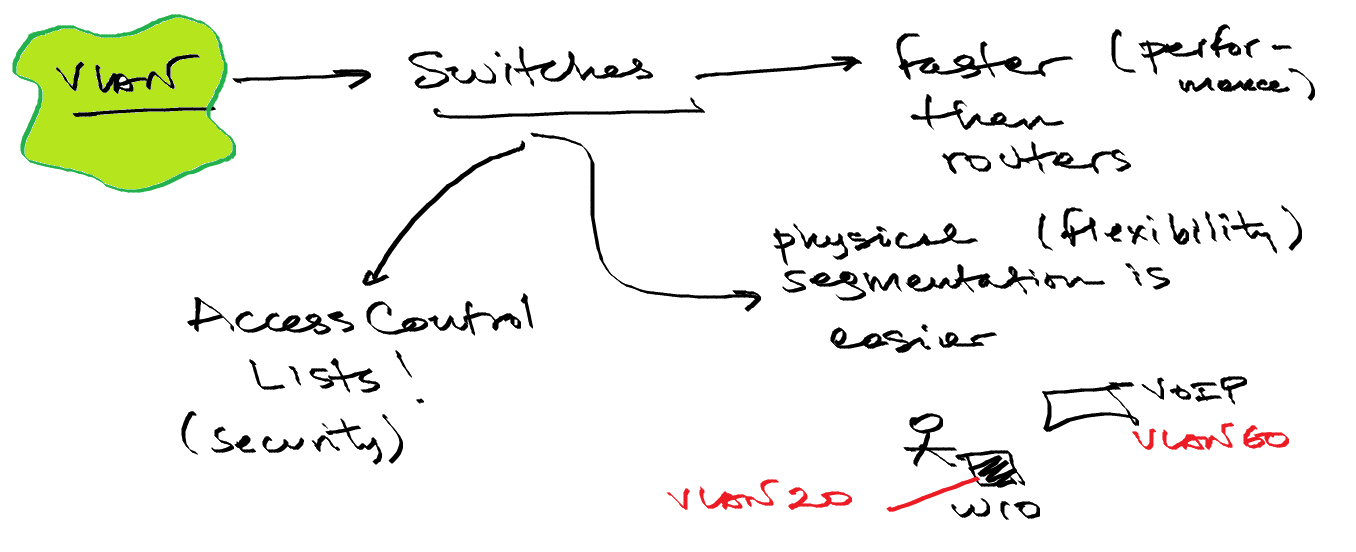 VLAN
Switches
faster (perfor-
mance)
than
routers
physical (flexibility)
segmentation is
easier
Access Control
Lists!
(security)
VOIP
VLAN 60
VLAN 20
W10